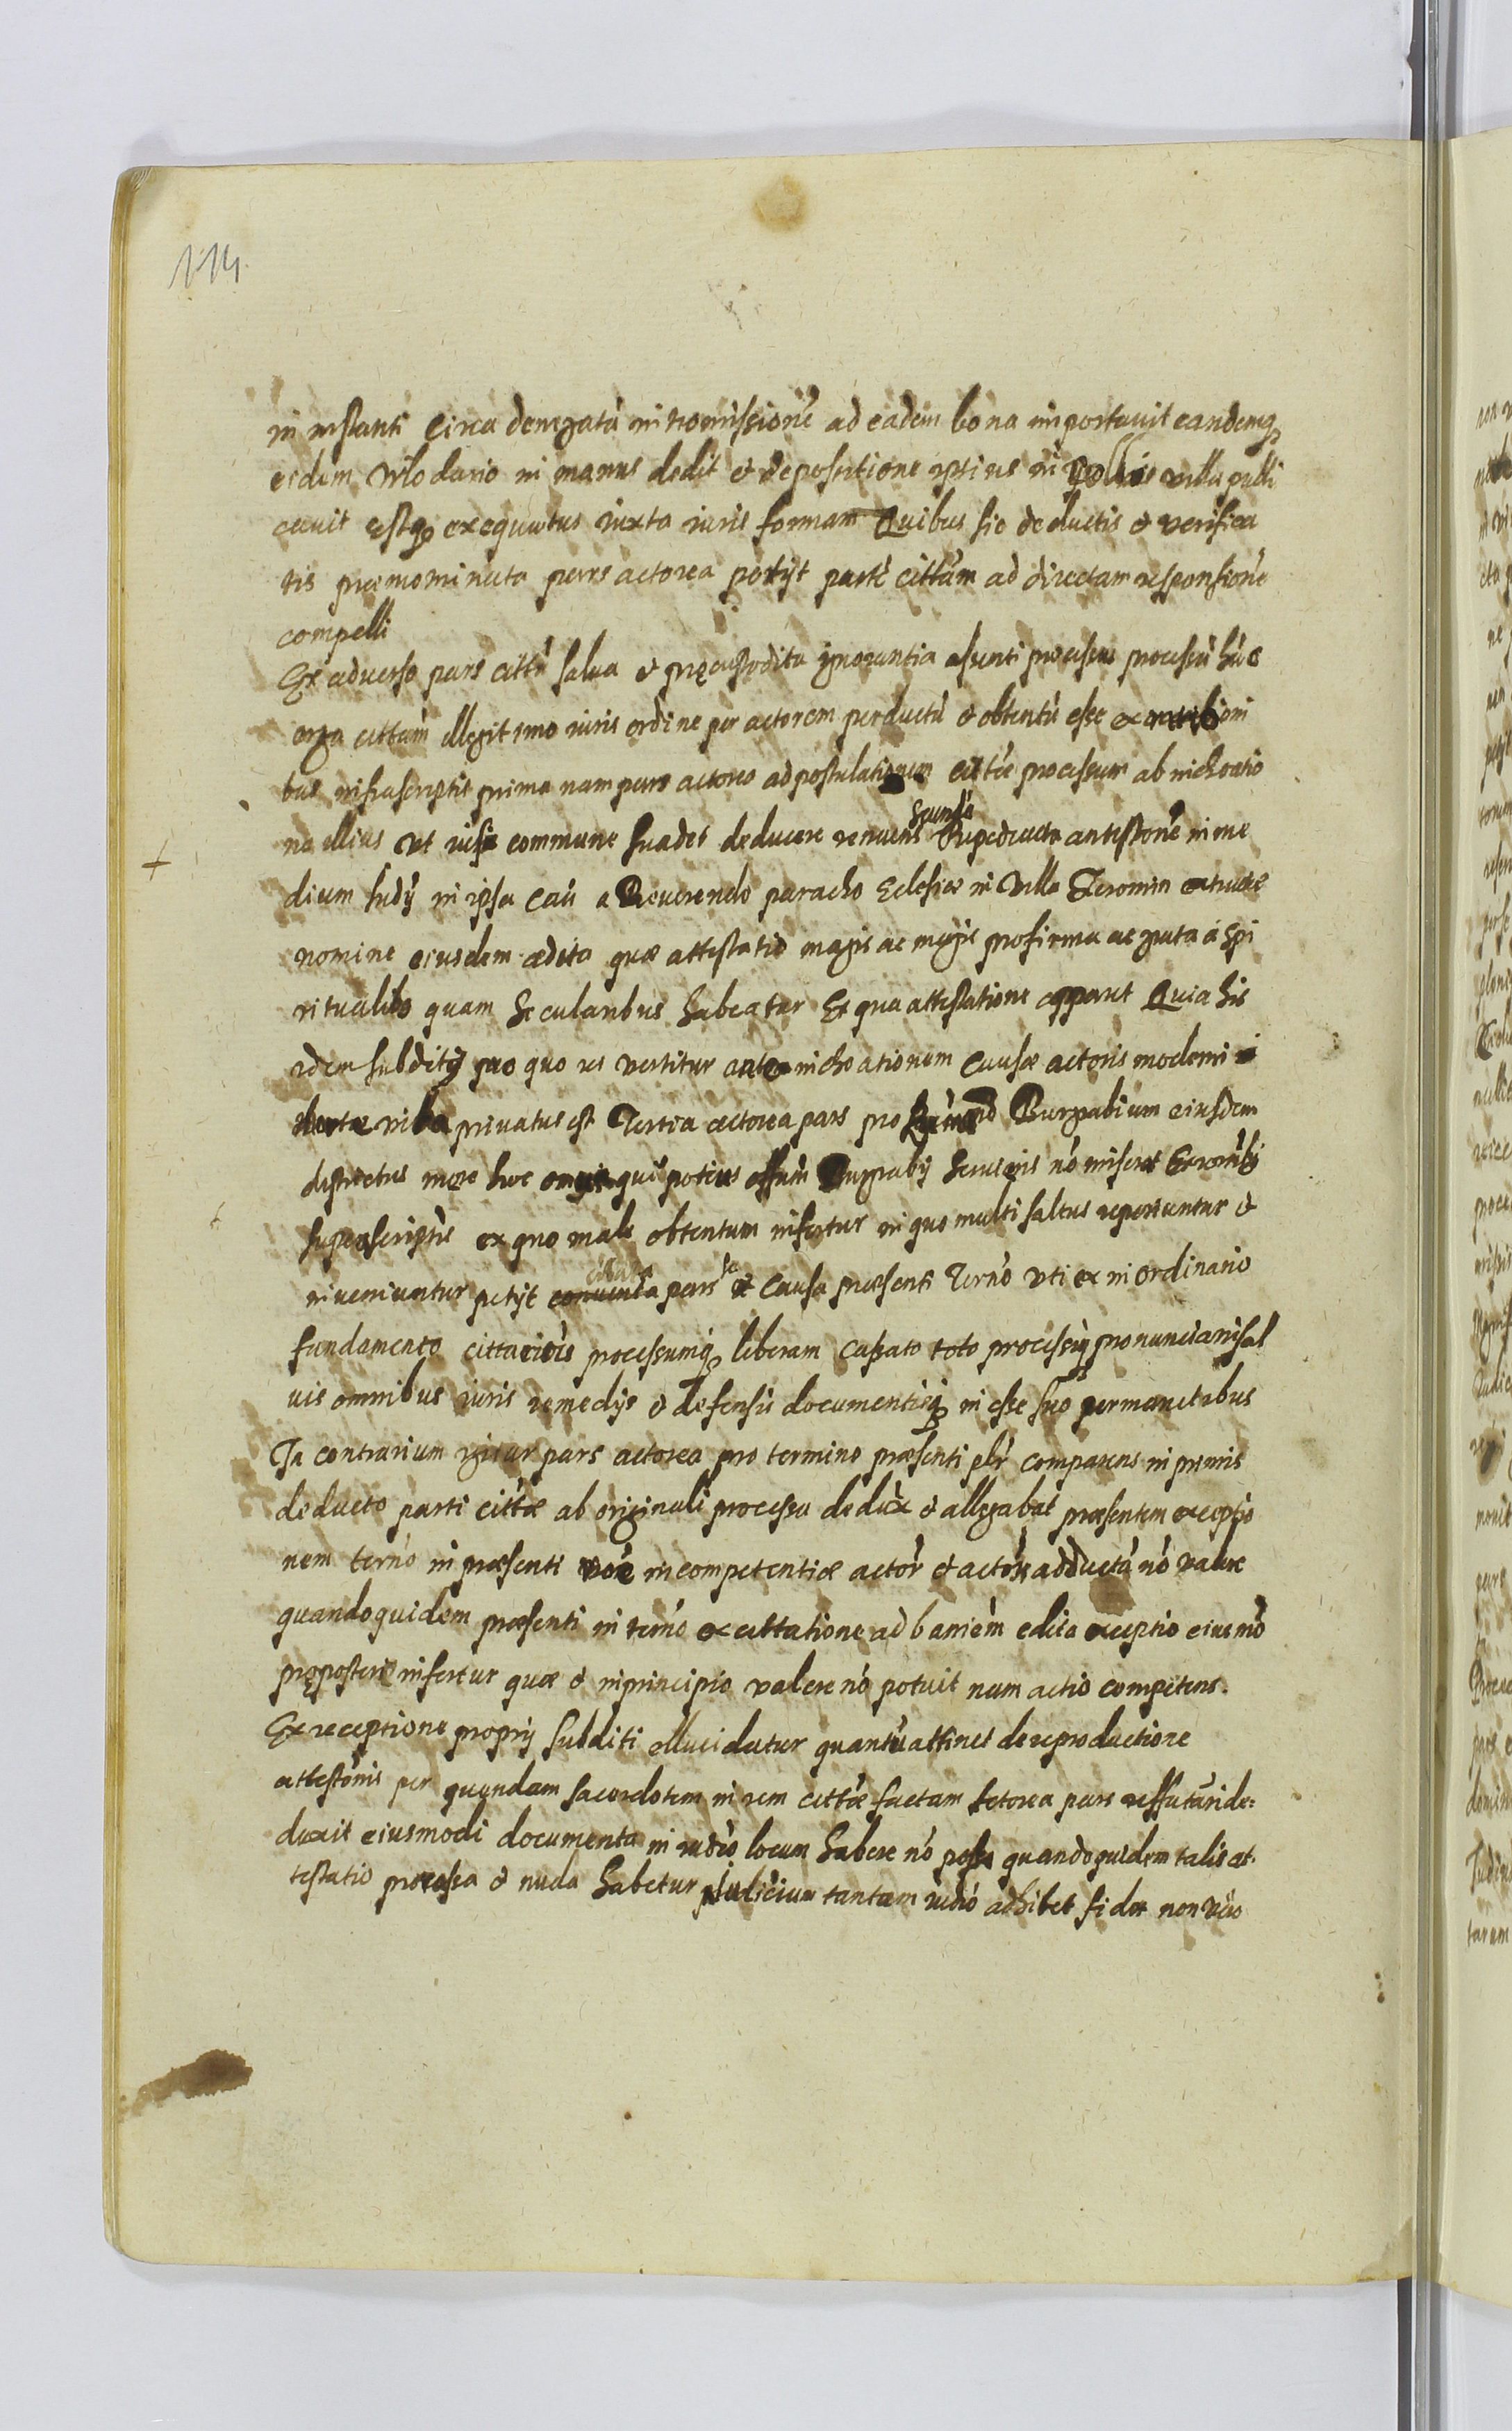 114.
in instanti circa denegatã intromissionẽ ad eadem bona importavit eandemq
eidem Vlodario in manus dedit et depositione ipsius in villa publi
cavit estq exequutus iuxta iuris formam Quibus sic deductis et verifica
tis prænominata pars actorea petijt partẽ cittam ad directam responsionẽ
compelli
Ex adverso pars citta salva et pręcustodita ignorantia processus processũ hũc
erga cittam illegitimo iuris ordine per actorem perductũ et obtentũ esse ex
bus infrascriptis prima nam pars actorea ad postulationem cittæ processum ab inchoatio
ne illius ut commune suadet deducere renuens Scundo in me
dium Iudÿ in ipsa caũ a Reverendo paracho Eclesiæ in Villa
nomine eiusdem ædita quæ attestatio magis ac magis pro firma ac grata a spi
ritualibo quam secularibus habeatur Ex qua attestatione apparet Quia hic
idem subditq pro quo res vertitur ante inchoationem causæ actoris moderni
privatus est Tertia actorea pars pro Burgrabium eiusdem
districtus more hoc qui potius Burgrabij nõ miserat
superscriptis ex quo male obtentum infertur in quo multi saltus reperiuntur et
inveniuntur petijt convenda citata pars se et causa præsenti Terño uti ex in ordinario
fundamento cittationis processumq liberam cassato toto processuq pronunciari sal
vis omnibus iuris remedijs et defensis documentisq in esse suo permanetibus
In contrarium igitur pars actorea pro termino præsenti comparens in primis
deducto parti cittæ ab originali processu deduxit et allegabat præsentem exceptio
nem terño in præsenti incompetentiæ actor et adductã nõ valere
quandoquidem præsenti in terño ex cittatione ad edita exceptio eius nõ
pręposterè infertur quæ et in principio valere nõ potuit nam actio competens.
Ex receptione proprij subditi ellucidatur quantũ attinet de reproductione
attestõnis per quendam sacerdotem in rem cittæ factam actorea pars de:
duxit eiusmodi documenta in iudõ locum habere nõ posse quandoquidem talis at
testatio et nuda habetur tantam iudiõ adhibet fidem non